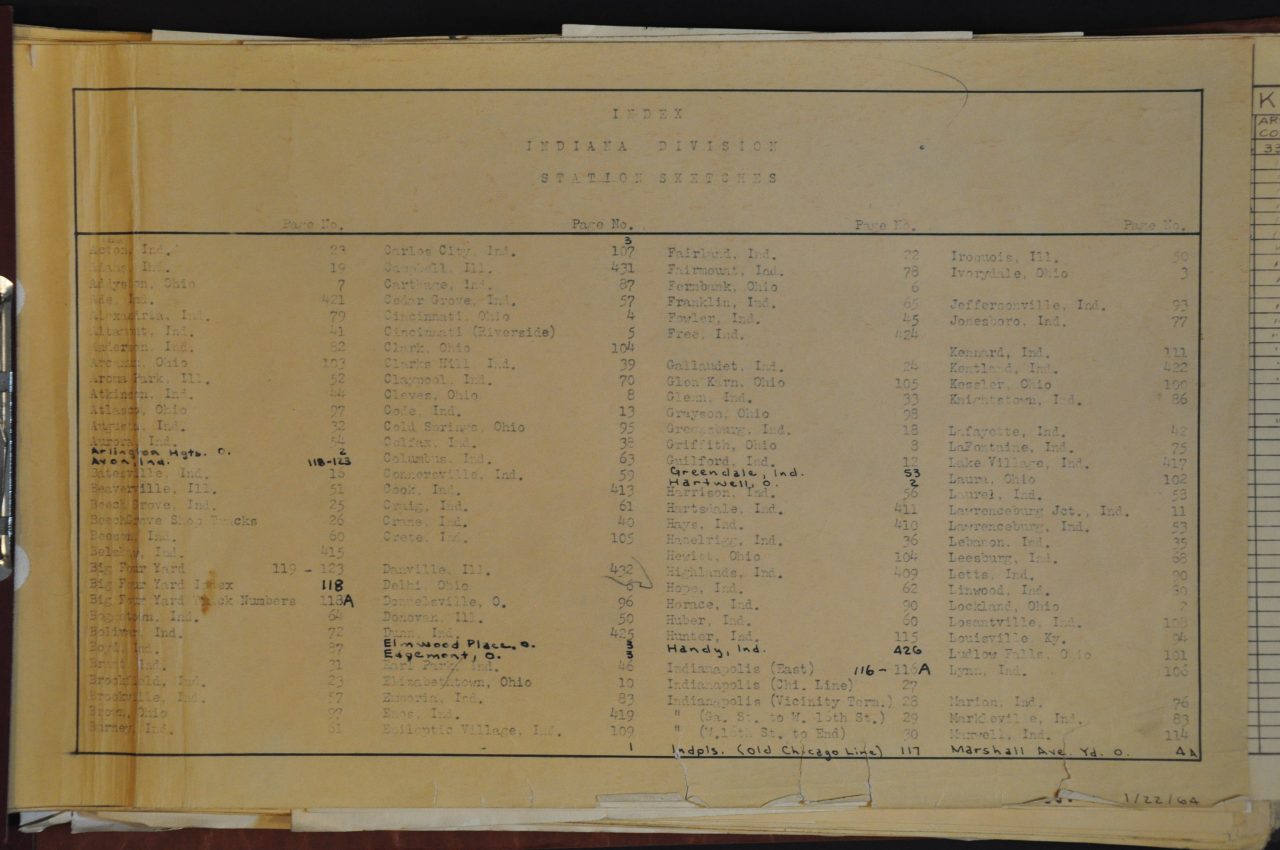 INDEX
INDIANA DIVISION
STATION SKETCHES
Page No. Page No. Page No. Page No.
Acton, Ind. 23
Adams, Ind. 19
Addyston, Ohio 7
Ade, Ind. 421
Alexandria, Ind. 79
Altamont, Ind. 41
Anderson, Ind. 82
Arcanum, Ohio 103
Aroma Park, Ill. 52
Atkinson, Ind. 44
Atlas, Ohio 97
Augusta, Ind. 32
Aurora, Ind. 54
Arlington Hgts. O. 2
Avon, Ind. 118-123
Batesville, Ind. 15
Beaverville, Ill. 51
Beech Grove, Ind. 25
BeechGrove Shop Tracks 26
Beeson, Ind. 60
Belshaw, Ind. 415
Big Four Yard 119 - 123
Big Four Yard Index 118
Big Four Yard Track Numbers 118A
Boggstown, Ind. 64
Bolivar, Ind. 72
Boyd, Ind. 87
Brant, Ind. 31
Brookfield, Ind. 23
Brookville, Ind. 57
Brown, Ohio 97
Burney, Ind. 61
3
Carlos City, Ind. 107
Campbell, Ill. 431
Carthage, Ind. 87
Cedar Grove, Ind. 57
Cincinnati, Ohio 4
Cincinnati (Riverside) 5
Clark, Ohio 104
Clarks Hill, Ind. 39
Claypool, Ind. 70
Cleves, Ohio 8
Code, Ind. 13
Cold Springs, Ohio 95
Colfax, Ind. 38
Columbus, Ind. 63
Connersville, Ind. 59
Cook, Ind. 413
Craig, Ind. 61
Crane, Ind. 40
Crete, Ind. 105
Danville, Ill. 432
Delhi, Ohio 6
Donnelsville, O. 96
Donovan, Ill. 50
Dunn, Ind. 425
Elmwood Place, O. 3
Edgemont, O. 3
Earl Park, Ind. 46
Elizabethtown, Ohio 10
Emporia, Ind. 83
Enos, Ind. 419
Epileptic Village, Ind. 109
1
Fairland, Ind. 22
Fairmount, Ind. 78
Fernbank, Ohio 6
Franklin, Ind. 65
Fowler, Ind. 45
Free, Ind. 424
Gallaudet, Ind. 24
Glen Karn, Ohio 105
Glenn, Ind. 33
Grayson, Ohio 98
Greensburg, Ind. 18
Griffith, Ohio 8
Guilford, Ind. 12
Greendale, Ind. 53
Hartwell, O. 2
Harrison, Ind. 56
Hartsdale, Ind. 411
Hays, Ind. 410
Hazelrigg, Ind. 36
Hewitt, Ohio 104
Highlands, Ind. 409
Hope, Ind. 62
Horace, Ind. 90
Huber, Ind. 60
Hunter, Ind. 115
Handy, Ind. 426
Indianapolis (East) 116 - 116A
Indianapolis (Chi. Line) 27
Indianapolis (Vicinity Term.) 28
" (Ga. St. to W. 16th St.) 29
" (W.16th St. to End) 30
Indpls. (old Chicago Line) 117
Iroquois, Ill. 50
Ivorydale, Ohio 3
Jeffersonville, Ind. 93
Jonesboro, Ind. 77
Kennard, Ind. 111
Kentland, Ind. 422
Kessler, Ohio 100
Knightstown, Ind. 86
Lafayette, Ind. 42
LaFontaine, Ind. 75
Lake Village, Ind. 417
Laura, Ohio 102
Laurel, Ind. 58
Lawrenceburg Jct., Ind. 11
Lawrenceburg, Ind. 53
Lebanon, Ind. 35
Leesburg, Ind. 68
Letts, Ind. 90
Linwood, Ind. 80
Lockland, Ohio 2
Losantville, Ind. 108
Louisville, Ky. 94
Ludlow Falls, Ohio 101
Lynn, Ind. 106
Marion, Ind. 76
Markleville, Ind. 83
Maxwell, Ind. 114
Marshall Ave. Yd. O. 4A
1/22/64
K
AR
CO
33